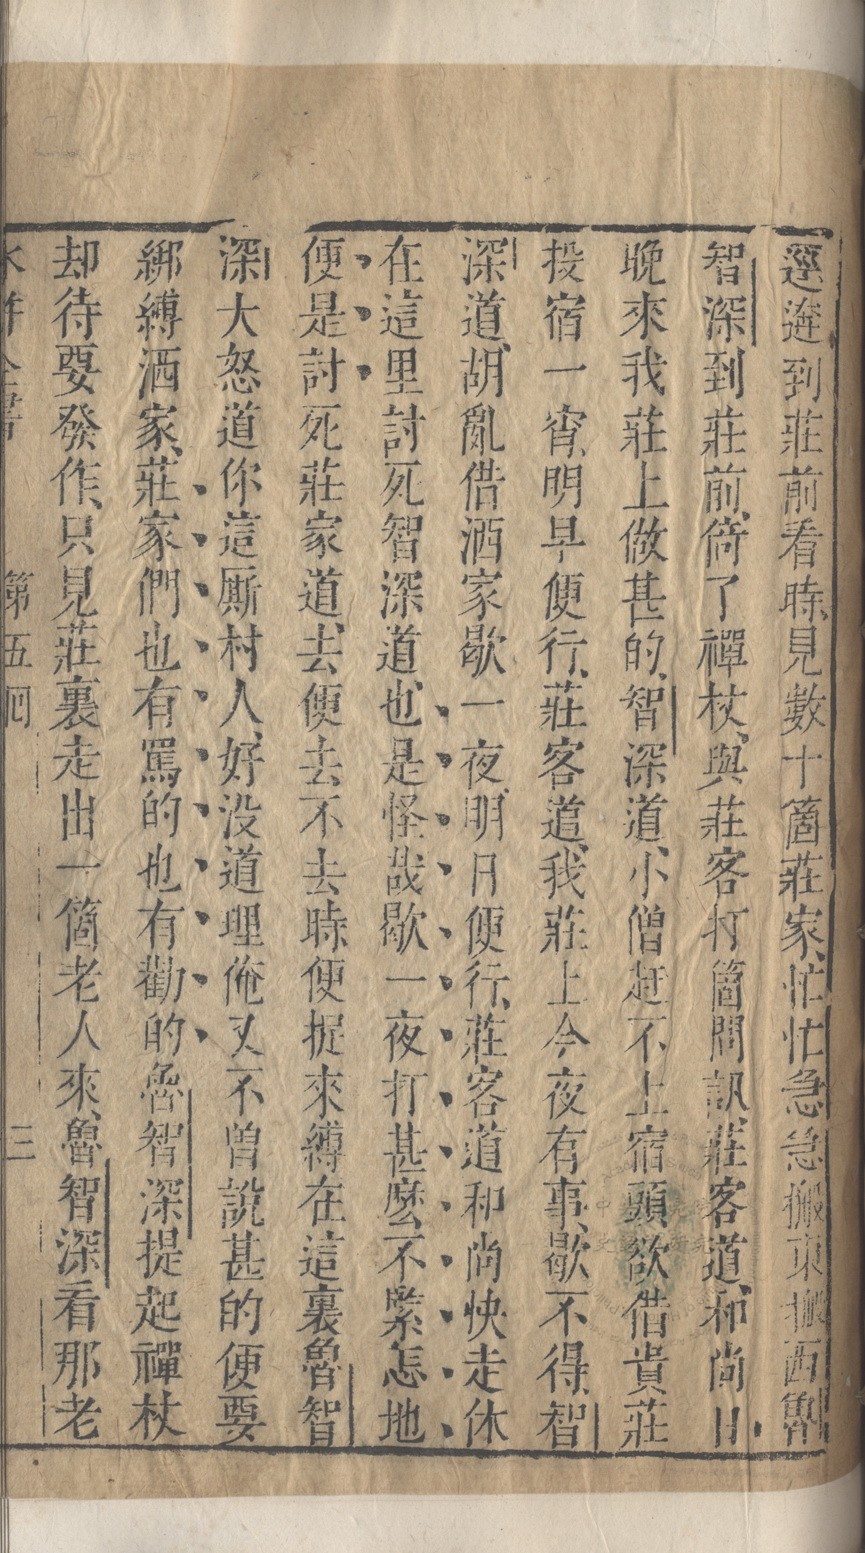 逕迯到莊前看時見數十箇莊家忙忙急急搬東搬西魯
智深到莊前倚了禪杖與莊客打箇問訊莊客道和尚日
晚來我莊上做甚的智深道小僧赶不上宿頭欲借貴莊
投宿一宵明早便行莊客道我莊上今夜有事歇不得智
深道胡亂借洒家歇一夜明日便行莊客道和尚快走休
在這里討死智深道也是怪哉歇一夜打甚麼不緊怎地
便是討死莊家道去便去不去時便捉來縛在這裏魯智
深大怒道你這厮村人好没道理俺又不曾説甚的便要
綁縛洒家莊家們也有罵的也有勸的魯智深提起禪杖
却待要發作只見莊裏走出一箇老人來魯智深看那老
水滸全書 第五囘 三